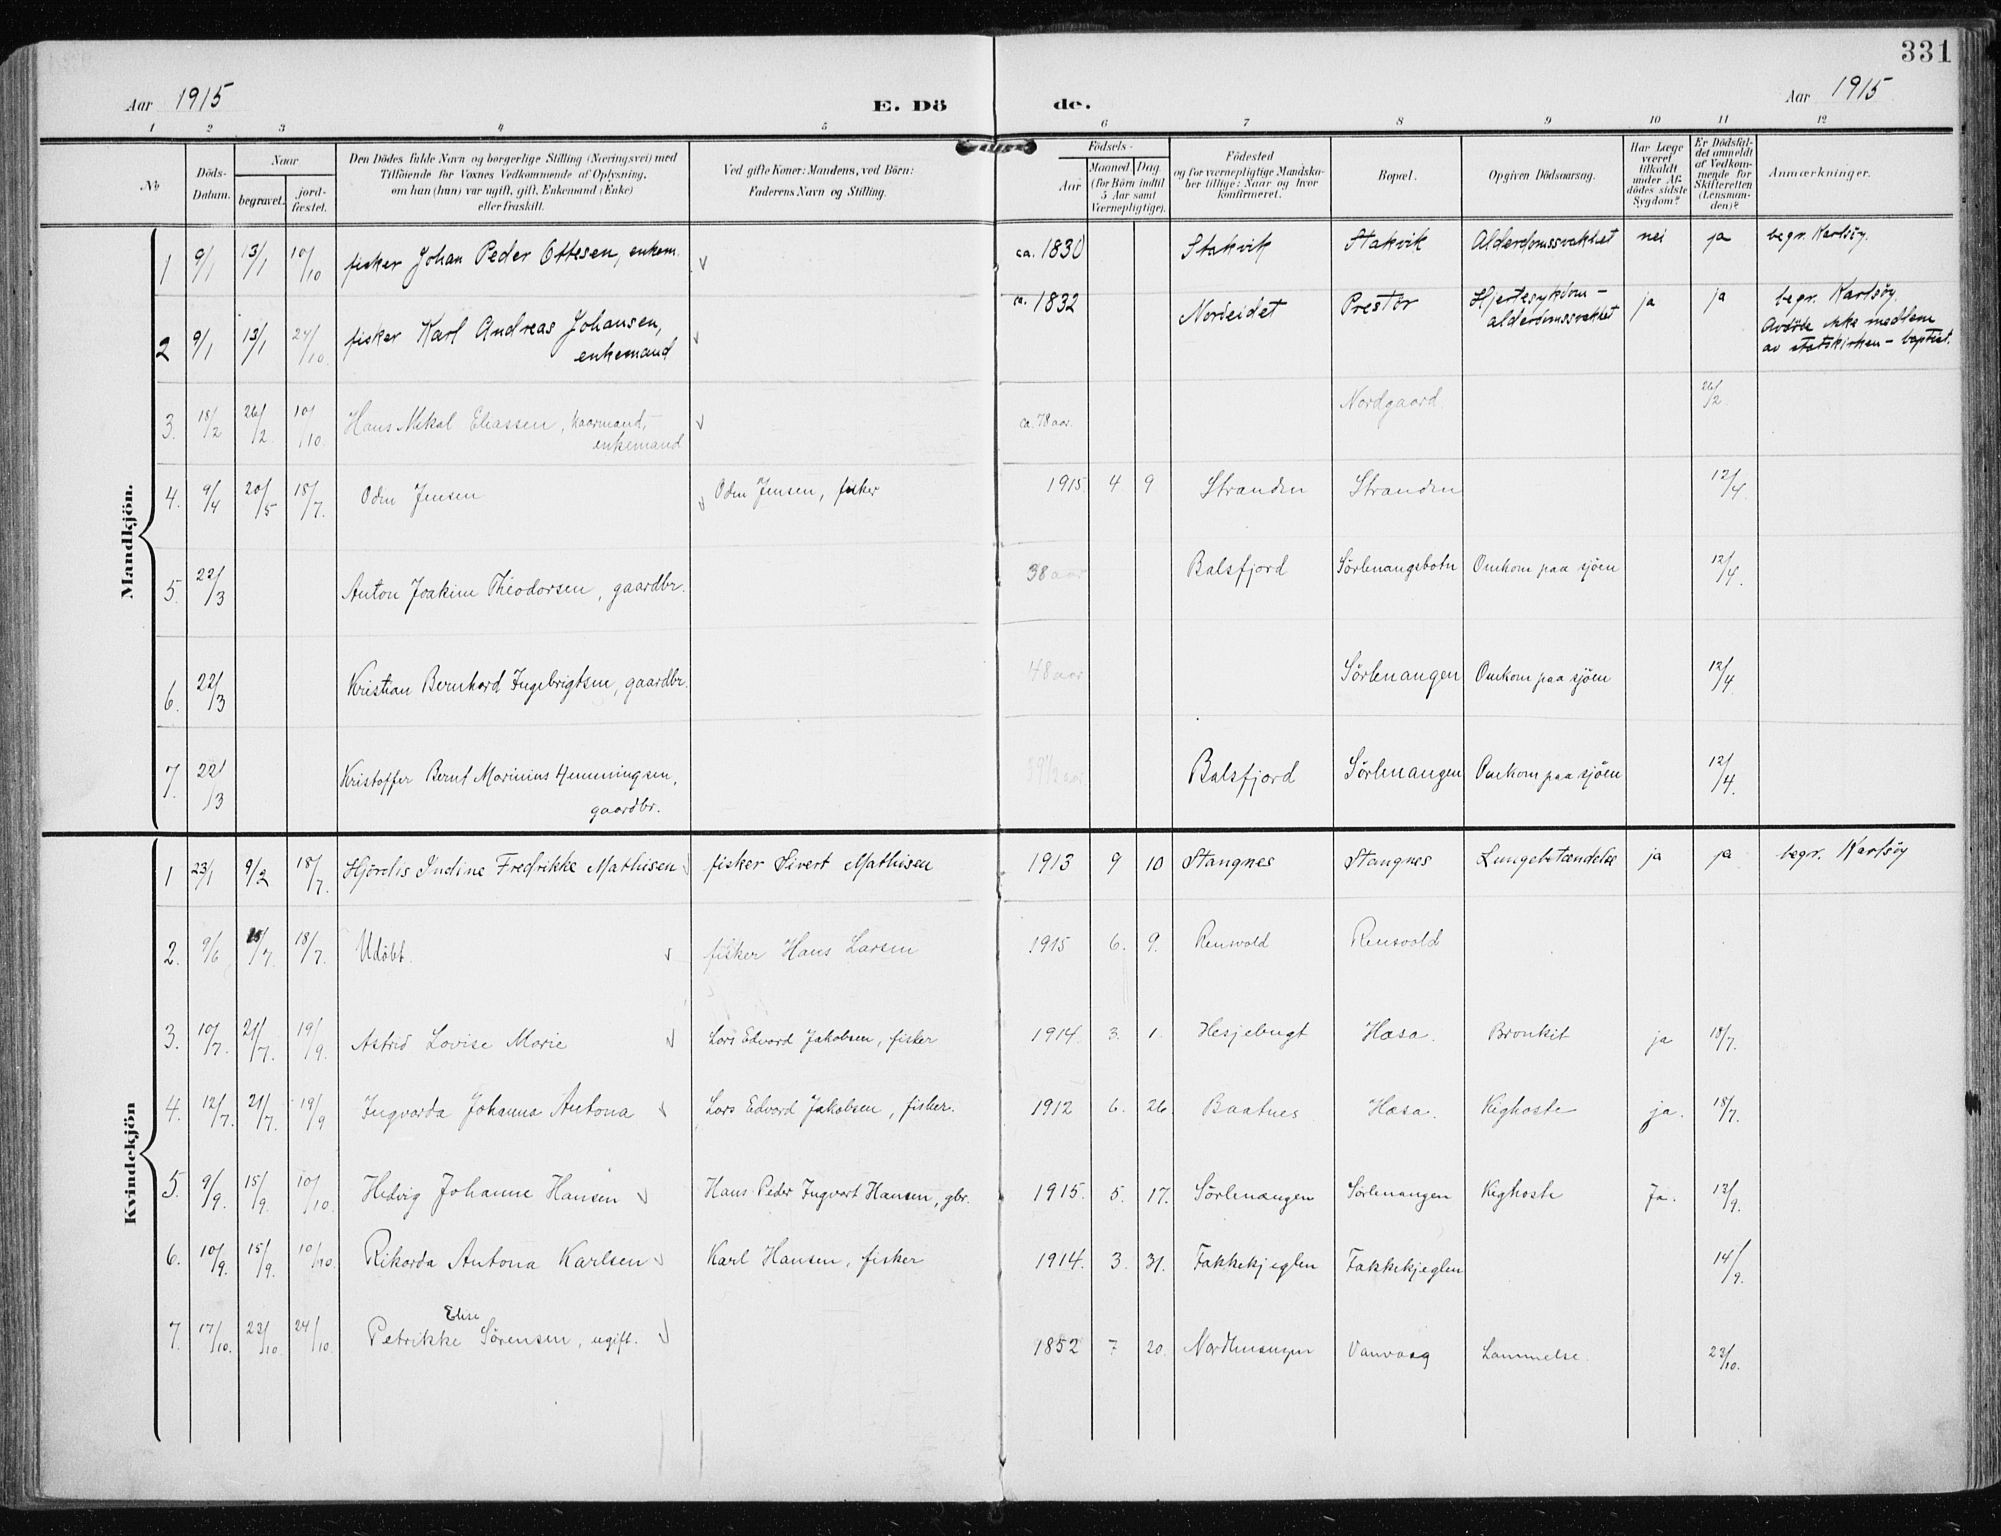 331
Aar 1915 E. Dö de. Aar 1915
1 2 3 4 5 6 7 8 9 10 11 12
No
Döds-Datum.
Naar
begravet.
jord-fæstet.
Den Dödes fulde Navn og borgerlige Stilling (Næringsvei) med
Tilföiende for Voxnes Vedkommende af Oplysning,
om han (hun) var ugift, gift, Enkemand (Enke)
eller fraskilt.
Ved gifte Koner: Mandens, ved Börn:
Faderens Navn og Stilling.
Födsels-
Aar
Maaned Dag
(for Börn indtil
5 Aar samt
Værnepligtige).
Födested
og for værnepligtige Mandska-
ber tillige: Naar og hvor
konfirmeret.
Bopæl.
Opgiven Dödsaarsag.
Har Læge
været
tilkaldt
under Af-
dödes sidste
Sygdom?
Er Dödsfal-
det anmeldt
af Vedkom-
mende for
Skifteretten
(Lensman-
den)?
Anmærkninger.
Mandkjön.
1 9/1 13/1 10/10 fisker Johan Peder Ottesen, enkem. ca. 1830 Stakvik Stakvik Alderdomssvakhet nei ja begr. Karlsöy.
2 9/1 13/1 24/10 fisker Karl Andreas Johansen, enkemand ca. 1832 Nordeidet Prestör Hjertesykdom - alderdomssvakhet ja ja begr. Karlsöy.
Avdöde ikke medlem
av statskirken - baptist.
3. 18/2 26/2 10/10 Hans Mikal Eliassen, kaarmand, enkemand ca. 78 aar. Nordgaard 26/2
4. 9/4 20/5 18/7. Oden Jensen Oden Jensen, fisker 1915. 4 9 Stranden Stranden 12/4.
5. 22/3 Anton Joakim Theodorsen, gaardbr. 38 aar Balsfjord Sörlenangsbotn Omkom paa sjöen 12/4.
6. 22/3 Kristian Bernhard Ingebrigtsen, gaardbr. 48 aar Sörlenangen Omkom paa sjöen 12/4.
7. 22/3 Kristoffer Bernt Marinius Hemmingsen, gaardbr. 39 1/2 aar Balsfjord Sörlenangen Omkom paa sjöen 12/4.
Kvindekjön
1 23/1 9/2 18/7. Hjördis Indine Fredrikke Mathisen fisker Sivert Mathisen 1913 9 10 Stangnes Stangnes Lungebetændelse ja ja begr. Karlsöy
2. 9/6 18/7. Udöbt. fisker Hans Larsen 1915 6. 9. Rensvold Rensvold
3. 10/7. 21/7. 19/9. Astrid Lovise Marie Lars Edvard Jakobsen, fisker 1914. 3. 1. Hesjebugt Hæsa. Bronkit ja 18/7.
4. 12/7. 21/7. 19/9 Ingvarda Johanna Antona Lars Edvard Jakobsen, fisker. 1912 6. 26. Baatnes Hæsa. Kighoste ja. 18/7.
5. 9/9. 15/9. 10/10. Hedvig Johanne Hansen Hans Peder Ingvart Hansen, gbr. 1915. 5. 17. Sörlenangen Sörlenangen Kighoste Ja. 13/9.
6. 10/9. 15/9. 10/10. Rikarda Antona Karlsen Karl Hansen, fisker 1914. 3. 31. Fakkekjeglen Fakkekjeglen 14/9.
Elise
7. 17/10. 23/10. 24/10. Petrikke Sörensen, ugift. 1852 7 20. Vanvaag Lammelse. 23/10.